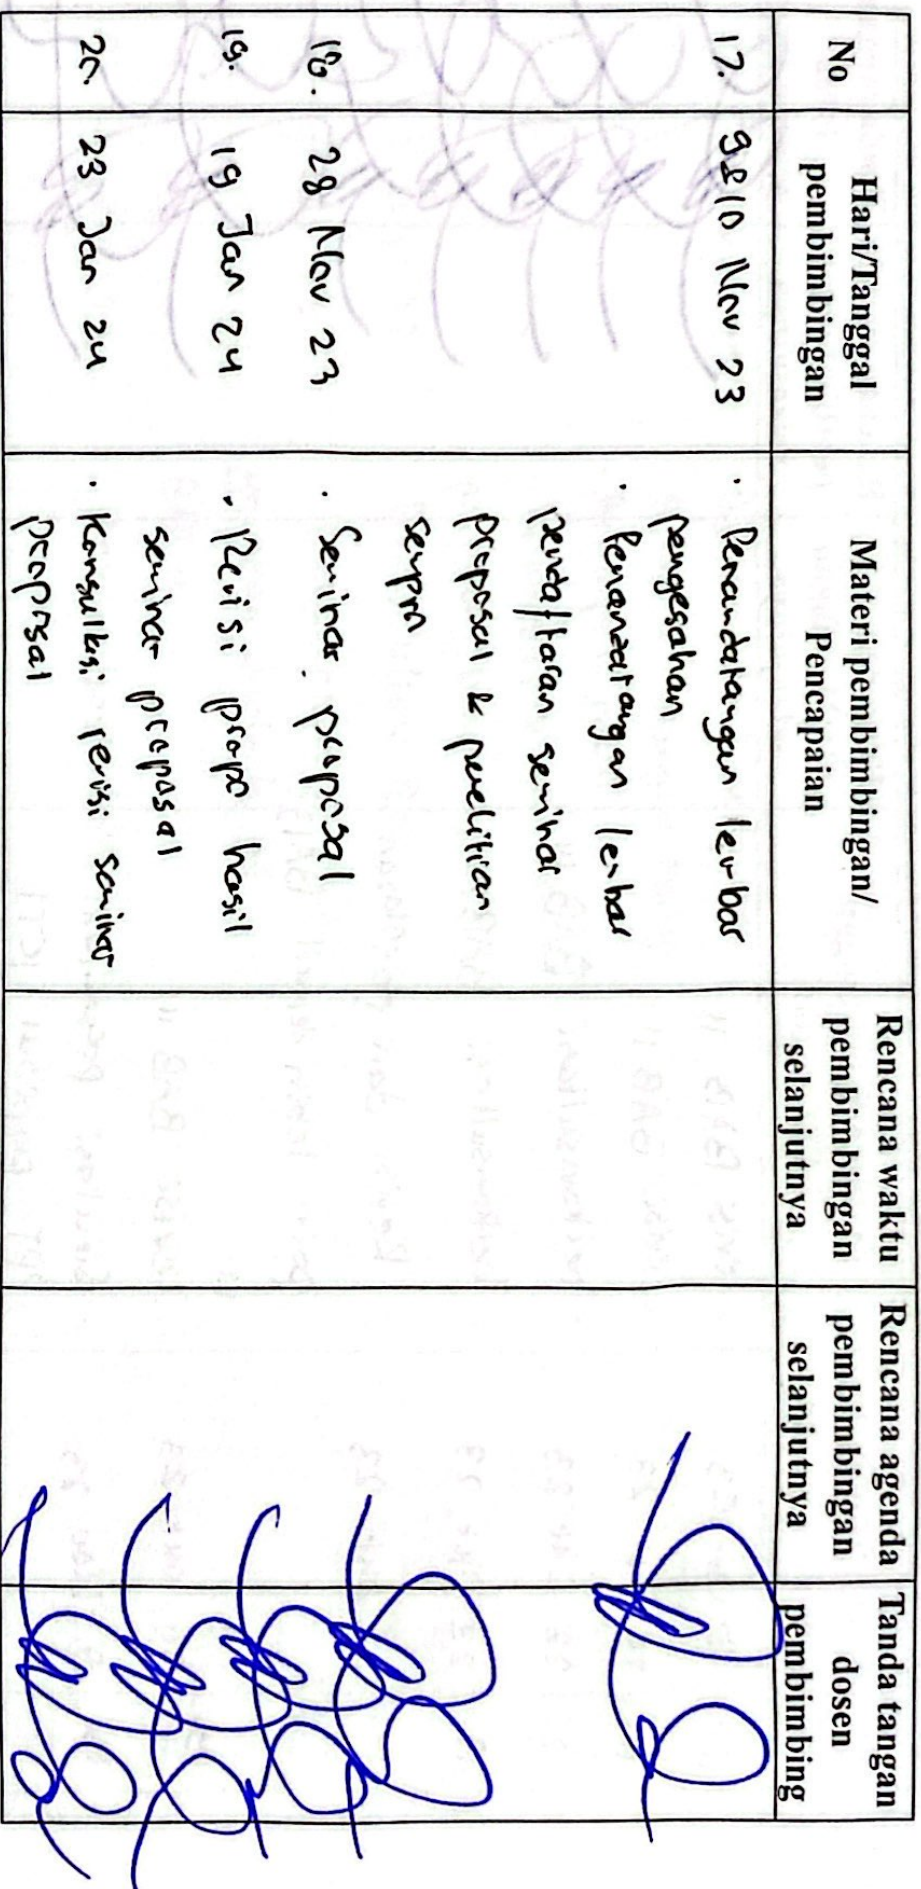 No
Hari/Tanggal
pembimbingan
Materi pembimbingan/
Pencapaian
Rencana waktu
pembimbingan
selanjutnya
Rencana agenda
pembimbingan
selanjutnya
Tanda tangan
dosen
pembimbing
17.
9&10 Nov 23
· Penandatangan lembar
pengesahan
· Penandatangan lembar
pendaftaran seminar
proposal & penelitian
sempro
18.
28 Nov 23
· Seminar proposal
19.
19 Jan 24
· Revisi propo hasil
seminar proposal
20.
23 Jan 24
· Konsultasi revisi seminar
proposal